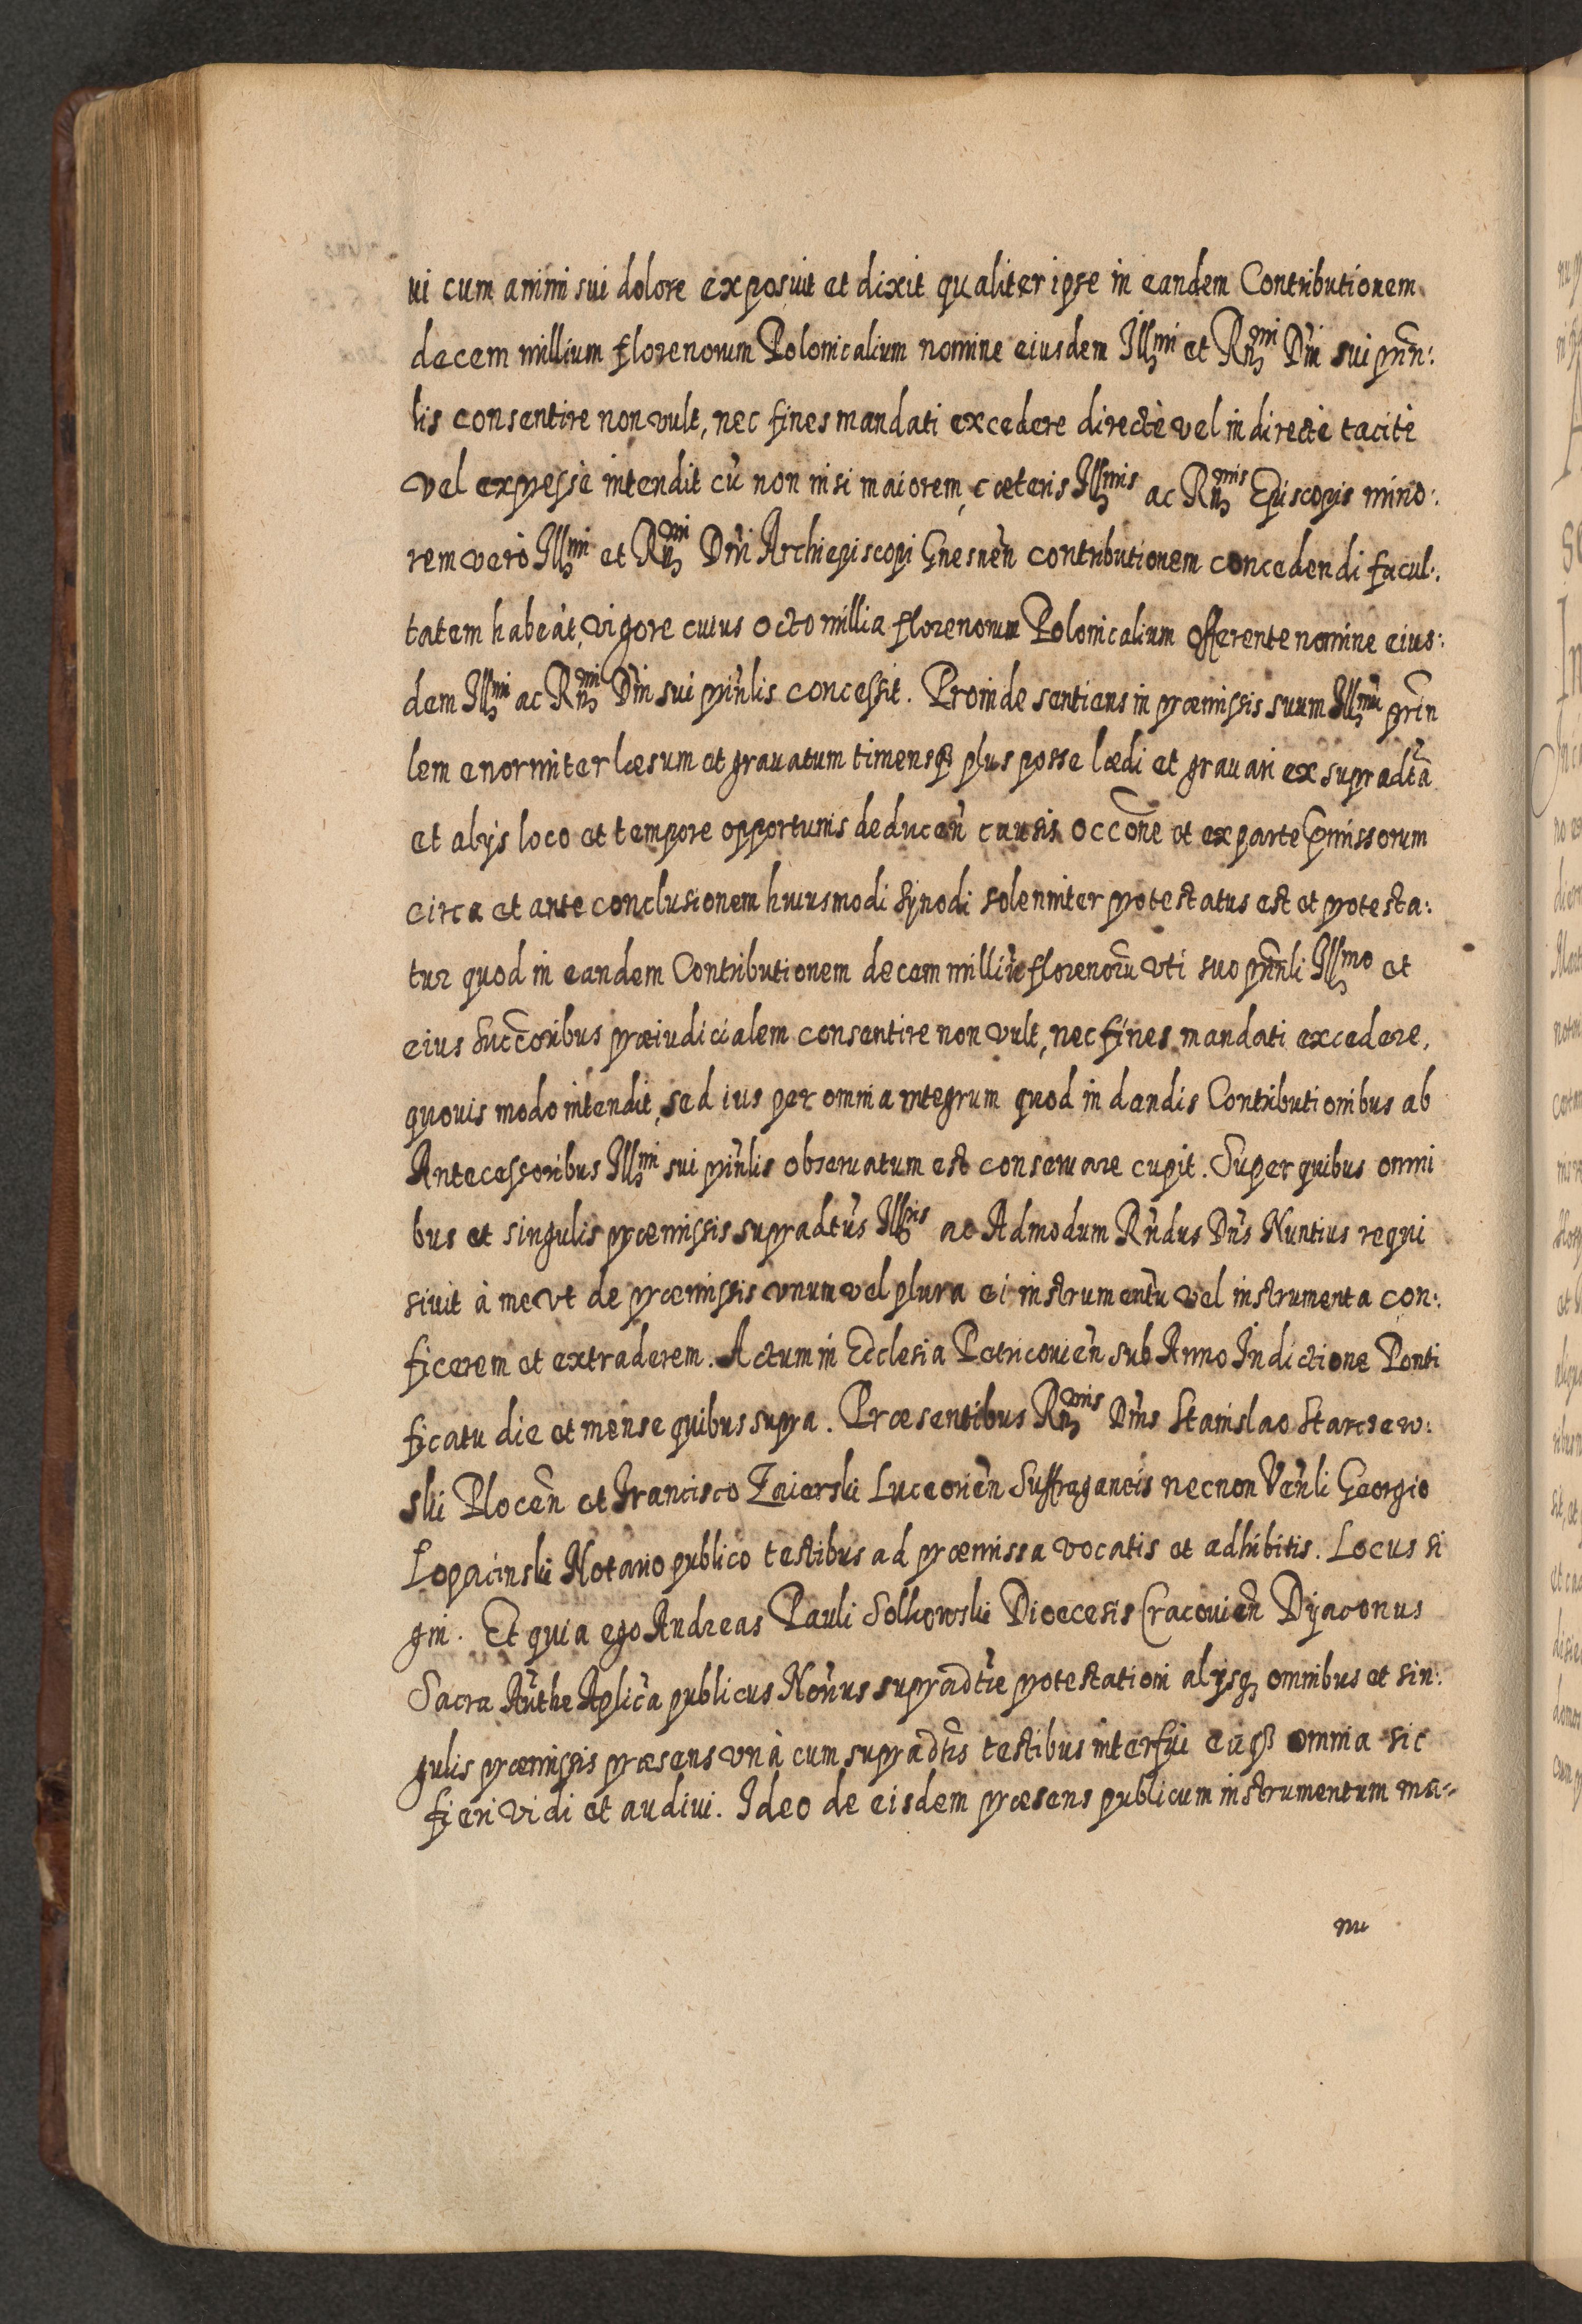 ui cum animi sui dolore exposuit et dixit qualiter ipse in eandem Contributionem
decem millium florenorum Polonicalium nomine eiusdem Illmi et Rmi Dni sui prin:
lis consentire non vult, nec fines mandati excedere directè vel indirectè tacitè
vel expressè intendit cũ non nisi maiorem, cœteris Illmis ac Rmis Episcopis mino:
rem verò Illmi et Rmi Dni Archiepiscopi Gnesnen̄ contributionem concedendi facul:
tatem habeat, vigore cuius octo millia florenorum Polonicalium offerente nomine eius:
dem Illmi ac Rmi Dni sui prinlis concessit. Proinde sentiens in præmissis suum Illmũ prin
lem enormiter læsum et grauatum timensq; plus posse lædi et grauari ex supradctã
et alijs loco et tempore opportunis deducen̄ causis occõne et ex parte p̄missorum
circa et ante conclusionem huiusmodi Synodi solenniter protestatus est et protesta:
tur quod in eandem Contributionem decem milliũ florenorũ vti suo prinli Illmo et
eius Succ̄oribus præiudicialem consentire non vult, nec fines mandati excedere,
quouis modo intendit, sed ius per omnia integrum quod in dandis Contributionibus ab
Antecessoribus Illmi sui prinlis obseruatum est conseruare cupit. Super quibus omni
bus et singulis præmissis supradtus Illris ac Admodum Rndus Dns Nuntius requi
siuit à me vt de præmissis vnum vel plura ei instrumentũ vel instrumenta con:
ficerem et extraderem. Actum in Ecclesia Petricouien̄ sub Anno Indictione Ponti
ficatu die et mense quibus supra. Præsentibus Rmis Dnis Stanislao Starczew:
ski Plocen̄ et Francisco Zaierski Luceorien̄ Suffraganeis necnon Venli Georgio
Lopacinski Notario publico testibus ad præmissa vocatis et adhibitis. Locus si
gni. Et quia ego Andreas Pauli Solkowski Dioecesis Cracouien̄ Dyaconus
Sacra Authe Aplica publicus Norius supradtæ protestationi alijsq; omnibus et sin:
gulis præmissis præsens vnà cum supradtis testibus interfui eaq; omnia sic
fieri vidi et audiui. Ideo de eisdem præsens publicum instrumentum ma:
nu